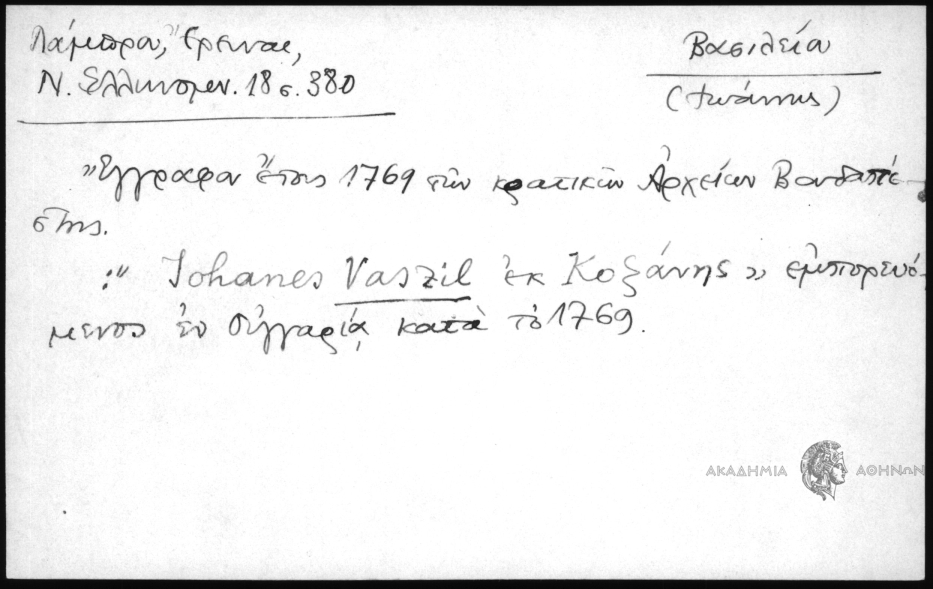 Λάμπρου, Ἔρευναι,
Ν. Ἑλληνομν. 18 σ. 380
Βασιλείου
(Ἰωάννης)
"Ἔγγραφον ἔτους 1769 τῶν κρατικῶν Ἀρχείων Βουδαπέ-
στης.
:" Iohanes Vaszil ἐκ Κοζάνης » ἐμπορευό-
μενος ἐν Οὑγγαρίᾳ κατὰ τὸ 1769.
ΑΚΑΔΗΜΙΑ ΑΘΗΝΩΝ